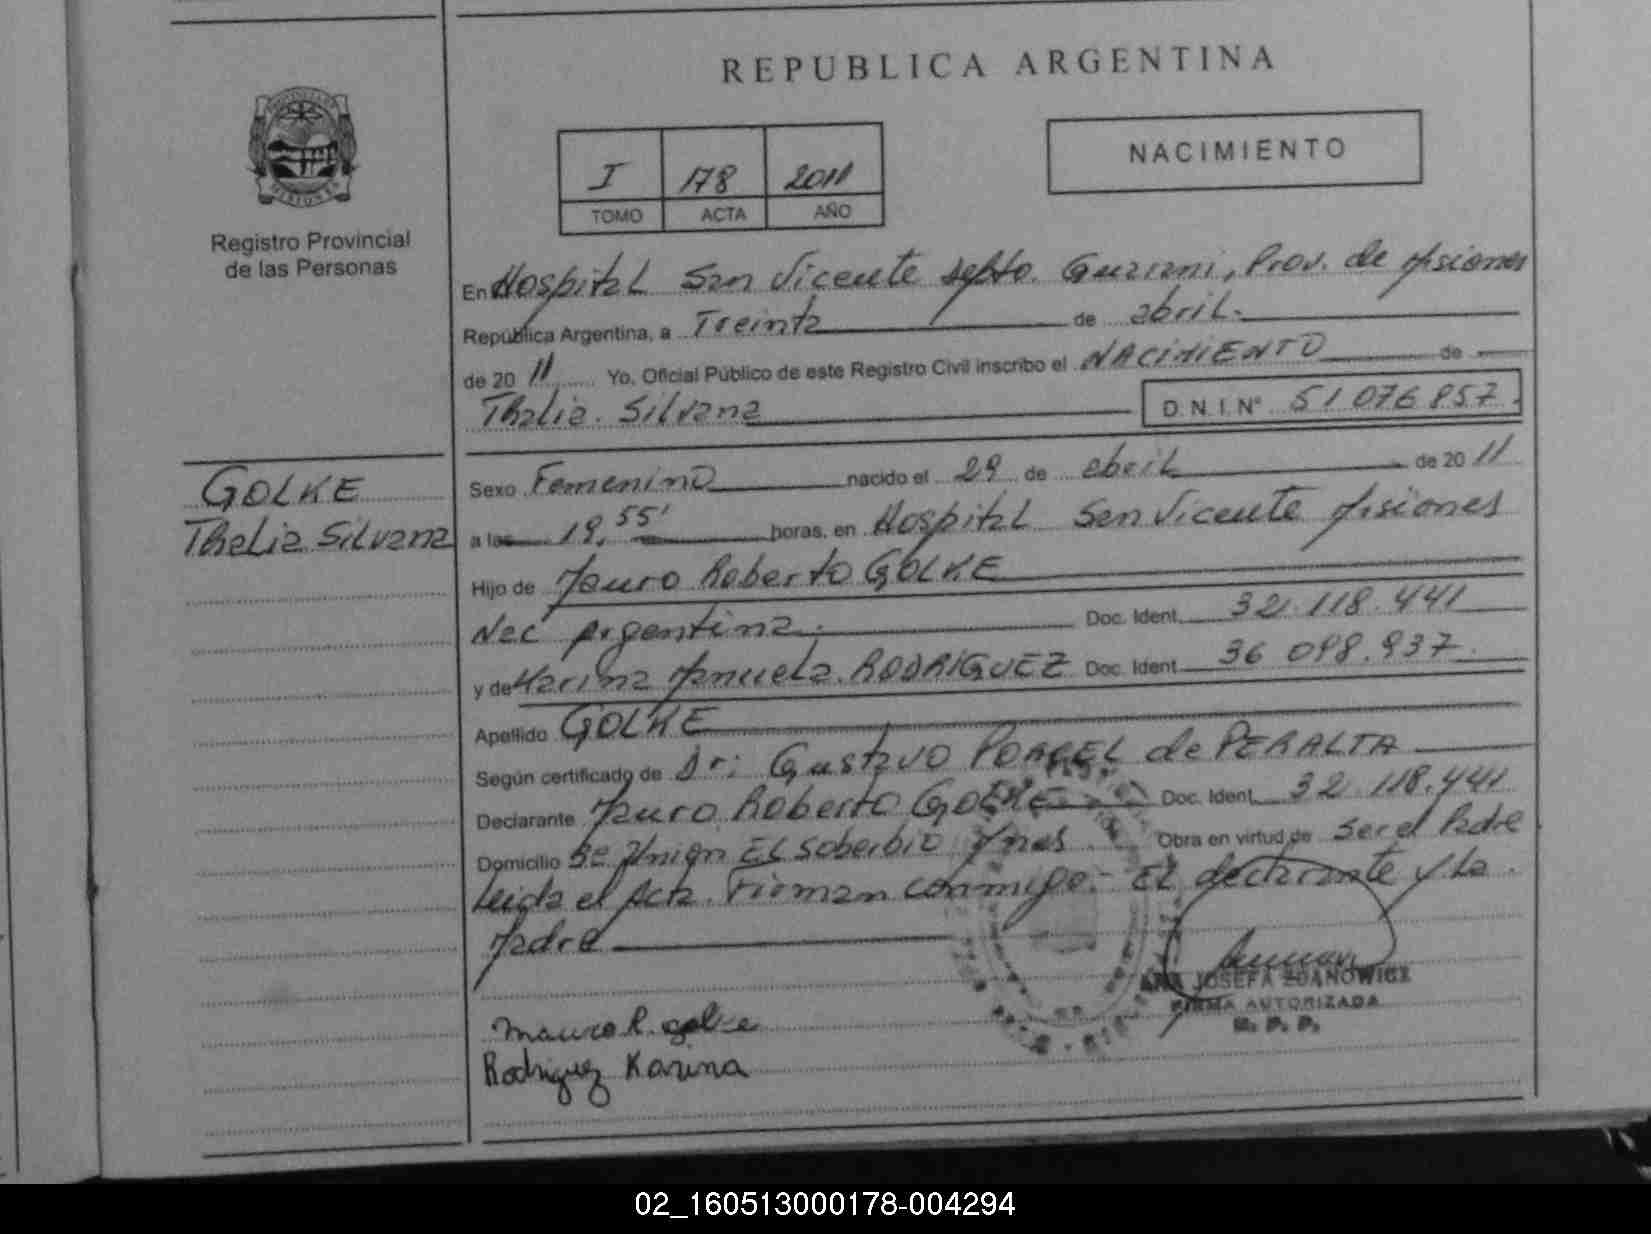 REPUBLICA ARGENTINA
PROVINCIA DE
MISIONES
Registro Provincial
de las Personas
I 178 2011
TOMO ACTA AÑO
NACIMIENTO
En Hospital San Vicente depto. Guarani, Prov. de Misiones
República Argentina, a Treinta de abril.
de 20 11 Yo, Oficial Público de este Registro Civil inscribo el NACIMIENTO de
Thalia. Silvana D.N.I. Nº 51 076 857.
GOLKE
Thalia Silvana
Sexo Femenino nacido el 29 de abril de 20 11
a las 18,55' horas, en Hospital San Vicente Misiones
Hijo de Mauro Roberto GOLKE
Nac Argentina. Doc. Ident. 32.118.441
y de Marina Manuela. RODRIGUEZ Doc. Ident. 36 098.937.
Apellido GOLKE
Según certificado de Dr; Gustavo PORCEL de PERALTA
Declarante Mauro Roberto GOLKE Doc. Ident. 32.118.441
Domicilio Unión El Soberbio Mnes Obra en virtud de Ser el Padre
Leida el Acta. Firman conmigo.- El declarante y la
Madre
Mauro R. golke
Rodriguez Karina
ANA JOSEFA ZDANOWICZ
FIRMA AUTORIZADA
R. P. P.
02_160513000178-004294